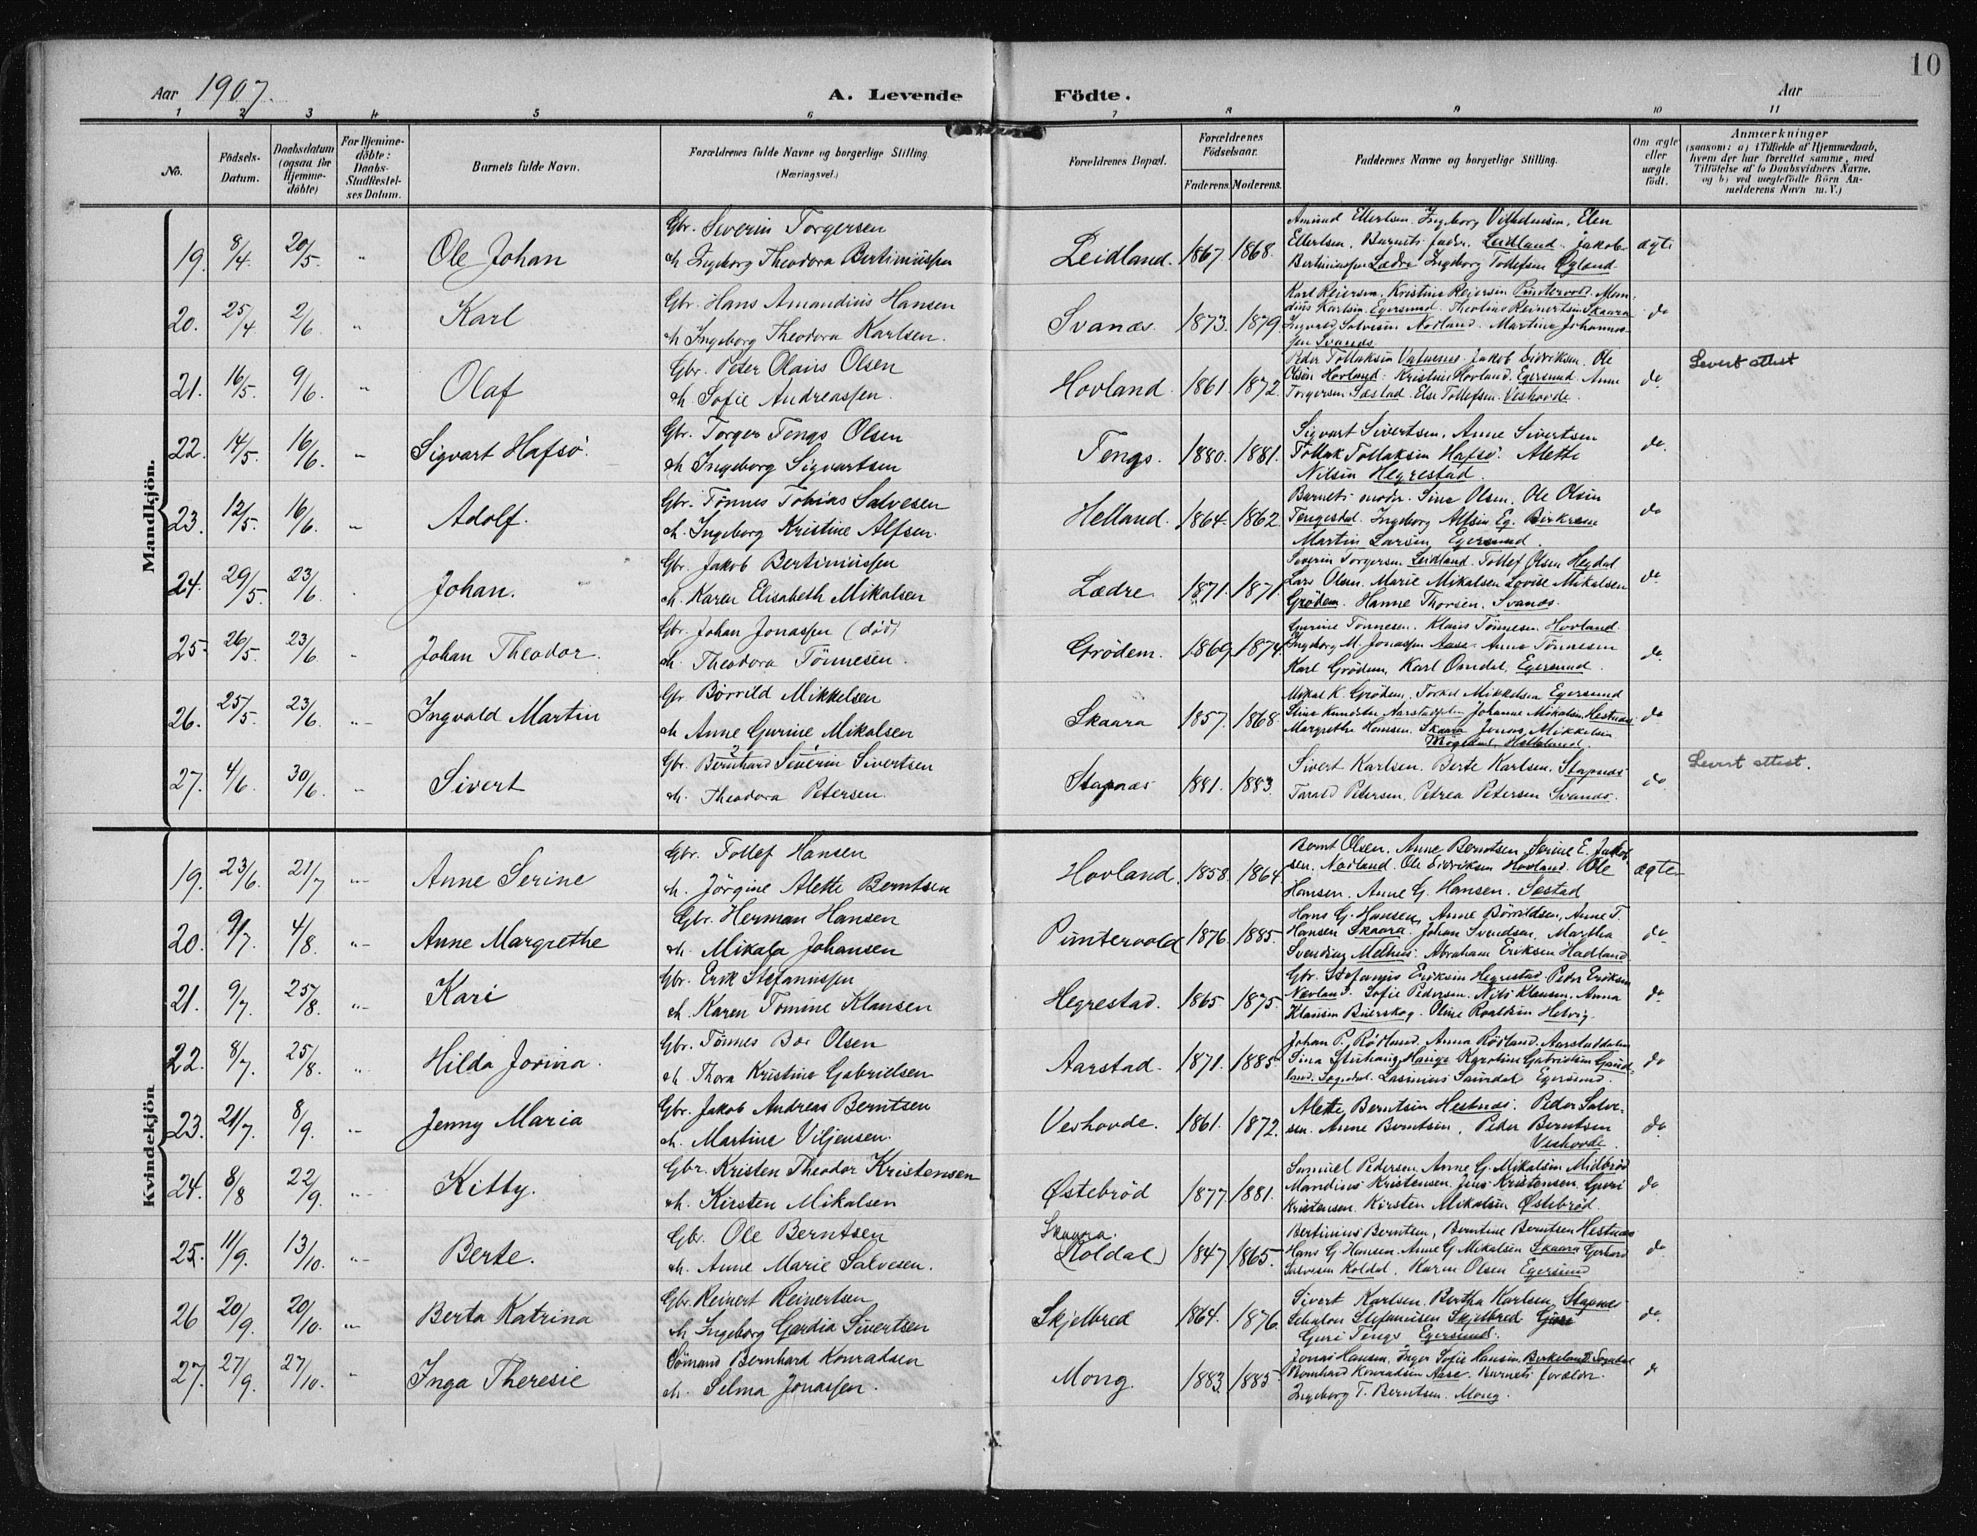 10
Aar 1907. A. Levende Födte. Aar
1 2 3 4 5 6 7 8 9 10 11
No. Födsels-Datum. Daabsdatum (ogsaa for Hjemmedöbte) For Hjemmedöbte: Daabs-Stadfæstelses Datum. Barnets fulde Navn. Forældrenes fulde Navne og borgerlige Stilling. (Næringsvei.) Forældrenes Bopæl. Forældrenes Födselsaar. Faderens. Moderens. Faddernes Navne og borgerlige Stilling. Om ægte eller uægte födt. Anmærkninger (saasom: a) i Tilfælde af Hjemmedaab, hvem der har forrettet samme, med Tilföielse af to Daabsvidners Navne. og b) ved uægtefödte Börn Anmelderens Navn m. V.)
Mandkjön.
19. 8/4 20/5. " Ole Johan Gbr. Severin Torgersen
& h. Ingeborg Theodora Bertiniussen Leidland. 1867. 1868. Amund Ellertsen. Ingeborg Vilhelmsen, Elen
Ellertsen. Barnets fader. Leidland. Jakob
Bertiniussen Lædre Ingeborg Tollefsen Øgland ægte
20. 25/4 2/6 " Karl Gbr. Hans Amandius Hansen
& h. Ingeborg Theodora Karlsen. Svanæs. 1873. 1879. Karl Reiersen. Kristine Reiersen Puntervold.
Karlsen. Egersund. Theoline Reinertsen Skaara
Ingvald Salvesen Nodland. Martine Johannes-
sen Svanæs do
21. 16/5. 9/6. " Olaf Gbr. Peter Olaus Olsen
& h. Sofie Andreassen. Hovland. 1861. 1872. Peder Tollaksen Jakob Eidriksen. Ole
Olsen Hovland. Kristine Hovland. Egersund. Anne
Torgersen Sæstad. Else Tollefsen. Veshovde. do Levert attest
22. 14/5. 16/6. " Sigvart Hafsö. Gbr. Torger Tengs Olsen
& h. Ingeborg Sigvartsen Tengs. 1880. 1881. Sigvart Sivertsen. Anne Sivertsen
Tollak Tollaksen Hafsö. Alette
Nilsen Hegrestad. do.
23. 12/5. 16/6. " Adolf. Gbr. Tønnes Tobias Salvesen
& h. Ingeborg Kristine Alfsen. Helland. 1864. 1862. Barnets moder. Sine Olsen. Ole Olsen
Tengesdal. Ingeborg Alfsen Eg. Birkrem
Martin Larsen, Egersund. do
24. 29/5. 23/6 Johan. Gbr. Jakob Bertiniussen
& h. Karen Elisabeth Mikalsen Lædre. 1871. 1871. Severin Torgersen Leidland. Tollef Olsen Hegdal
Lars Olsen. Marie Mikalsen Lovise Mikalsen
Grödem. Hanne Thorsen, Svanæs. do
25. 26/5. 23/6 " Johan Theodor. Gbr. Johan Jonassen (död)
& h. Theodora Tönnesen. Grödem. 1869. 1874. Gurine Tönnesen. Klaus Tönnesen Hovland.
Ingeborg M. Jonassen Aase. Anna Tönnesen
Karl Grödem, Karl Omdal, Egersund. do.
26. 25/5. 23/6. " Ingvald Martin Gbr Børrild Mikkelsen
& h Anne Gurine Mikalsen Skaara 1857. 1868. Mikal K. Grödem. Torkel Mikkelsen Egersund
Stine Knudsen Johanne Mikalsen Hestnæs
Margrethe Hansen. Skaara Jonas Mikkelsen
do
27. 4/6. 30/6. " Sivert Gbr. Bernhard Severin Sivertsen
& h. Theodora Petersen. Stapnæs 1881. 1883. Sivert Karlsen. Berte Karlsen. Stapnæs
Tarald Petersen. Petrea Petersen Svanæs. do Levert attest.
Kvindekjön
19. 23/6. 21/7 " Anne Serine Gbr. Tollef Hansen
& h. Jörgine Alette Berntsen Hovland. 1858. 1864 Bernt Olsen. Anne Berntsen. Serine E. Jakob-
sen. Nodland. Ole Eidriksen Hovland. Ole
Hansen. Anne G. Hansen. Sæstad ægte
20. 9/7. 4/8. " Anne Margrethe Gbr. Herman Hansen
& h. Mikala Johansen Puntervold 1876. 1885. Hans G. Hansen, Anne Børrildsen, Anne T.
Hansen Skaara. Johan Svendsen, Martha
Svendsen Melhus. Abraham Eriksen Hadland do
21. 9/7. 25/8. " Kari Gbr. Erik Stefanussen
& h. Karen Tomine Klausen Hegrestad. 1865 1875. Gbr. Stefanus Eriksen Hegrestad Peder Eriksen
Nevland. Sofie Pedersen. Nils Klausen. Anna
Klausen Bilerskog. Oline Roaldsen do
22. 8/7. 25/8. " Hilda Jorina. Gbr. Tönnes Bor Olsen
& h. Thora Kristine Gabrielsen Aarstad. 1871. 1885. Johan P. Rödland. Anna Rödland. Aarstaddalen
Sina Karoline Gabrielsen
Egersund. do
23. 21/7. 8/9. " Jenny Maria Gbr. Jakob Andreas Berntsen
& h. Martine Viljensen. Veshovde. 1861. 1872. Alette Berntsen Hestnæs. Peder Salve-
sen. Anne Berntsen, Peder Berntsen
Veshovde. do.
24. 8/8 22/9. " Kitty. Gbr. Kristen Theodor Kristensen
& h. Kirsten Mikalsen Østebröd 1877. 1881. Samuel Pedersen. Anne G. Mikalsen Midbröd
Mandius Kristensen. Jens Kristensen. Guri
Kristensen. Kirsten Mikalsen Østebröd. do
25. 11/9. 13/10. " Berte. Gbr. Ole Berntsen
& h. Anne Marie Salvesen. Skaara
(Koldal) 1847 1865. Bertinius Berntsen, Berntine Berntsen Hestnæs
Hans G. Hansen. Anne G. Mikalsen Skaara Gerhard
Salvesen Koldal. Karen Olsen Egersund do
26 20/9. 20/10. " Berta Katrina Gbr. Reinert Reinertsen
& h Ingeborg Gardia Sivertsen Skjelbred 1864. 1876. Sivert Karlsen. Bertha Karlsen, Stapnæs
Stefanusen Skjelbred Guri
Guri Tengs Egersund. do.
27. 27/9. 27/10. " Inga Theresie Sömand Bernhard Konradsen
& h. Selma Jonassen. Mong. 1883. 1885. Jonas Hansen. Inger Sofie Hansen. Birkeland Sogndal
Bernhard Konradsen Aase. Barnets forældre.
Ingeborg T. Berntsen. Mong. do